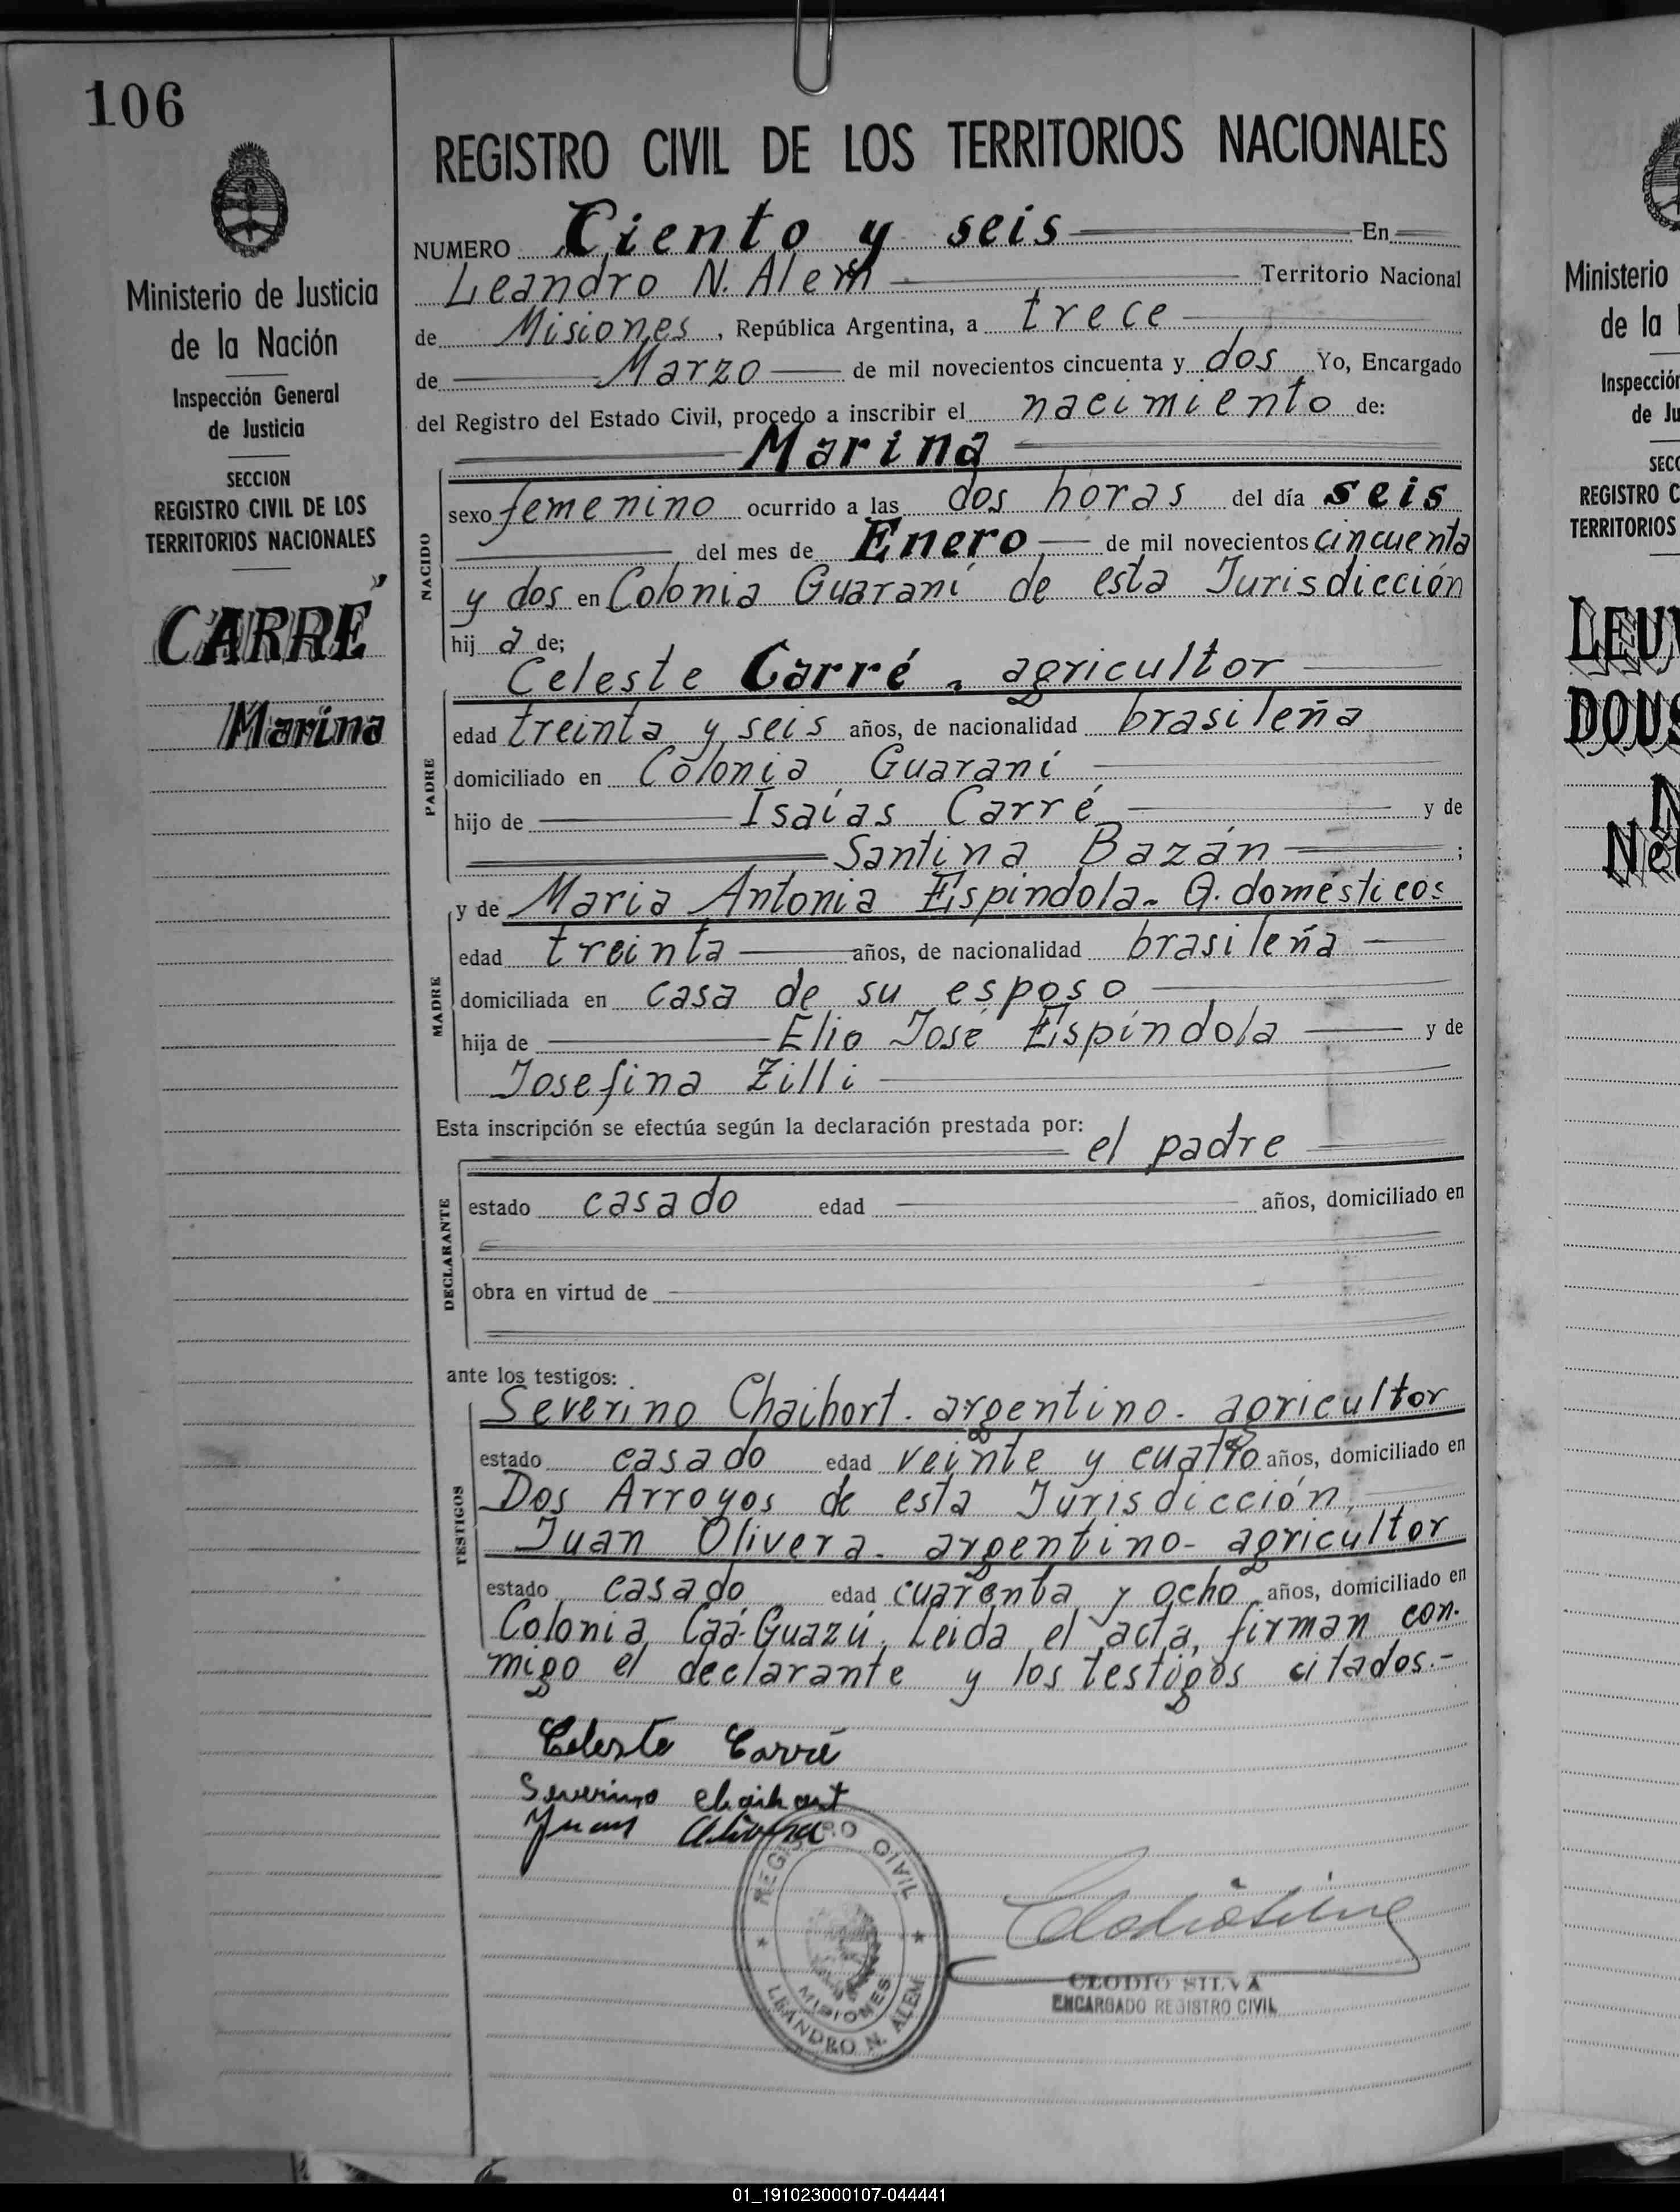 106
Ministerio de Justicia
de la Nación
Inspección General
de Justicia
SECCION
REGISTRO CIVIL DE LOS
TERRITORIOS NACIONALES
CARRÉ
Marina
REGISTRO CIVIL DE LOS TERRITORIOS NACIONALES
NUMERO Ciento y seis En
Leandro N. Alem Territorio Nacional
de Misiones, República Argentina, a trece
de Marzo de mil novecientos cincuenta y dos Yo, Encargado
del Registro del Estado Civil, procedo a inscribir el nacimiento de:
Marina
NACIDO
sexo femenino ocurrido a las dos horas del día seis
del mes de Enero de mil novecientos cincuenta
y dos en Colonia Guaraní de esta Jurisdicción
hij a de;
Celeste Carré. agricultor
PADRE
edad treinta y seis años, de nacionalidad brasileña
domiciliado en Colonia Guaraní
hijo de Isaías Carré y de
Santina Bazán ;
y de Maria Antonia Espíndola. Q. domésticos
MADRE
edad treinta años, de nacionalidad brasileña
domiciliada en casa de su esposo
hija de Elio José Espíndola y de
Josefina Zilli
Esta inscripción se efectúa según la declaración prestada por:
el padre
DECLARANTE
estado casado edad años, domiciliado en
obra en virtud de
ante los testigos:
Severino Chaihort. argentino. agricultor
TESTIGOS
estado casado edad veinte y cuatro años, domiciliado en
Dos Arroyos de esta Jurisdicción,
Juan Olivera. argentino- agricultor
estado casado edad cuarenta y ocho años, domiciliado en
Colonia Caá-Guazú. Leida el acta, firman con-
migo el declarante y los testigos citados.-
Celeste Carré
Severino Chaihort
Juan Olivera
REGISTRO CIVIL
MISIONES
LEANDRO N. ALEM
CLODIO SILVA
ENCARGADO REGISTRO CIVIL
Ministerio
de la
Inspección
de Ju
SECC
REGISTRO C
TERRITORIOS
LEUV
DOUS
Nél
01_191023000107-044441